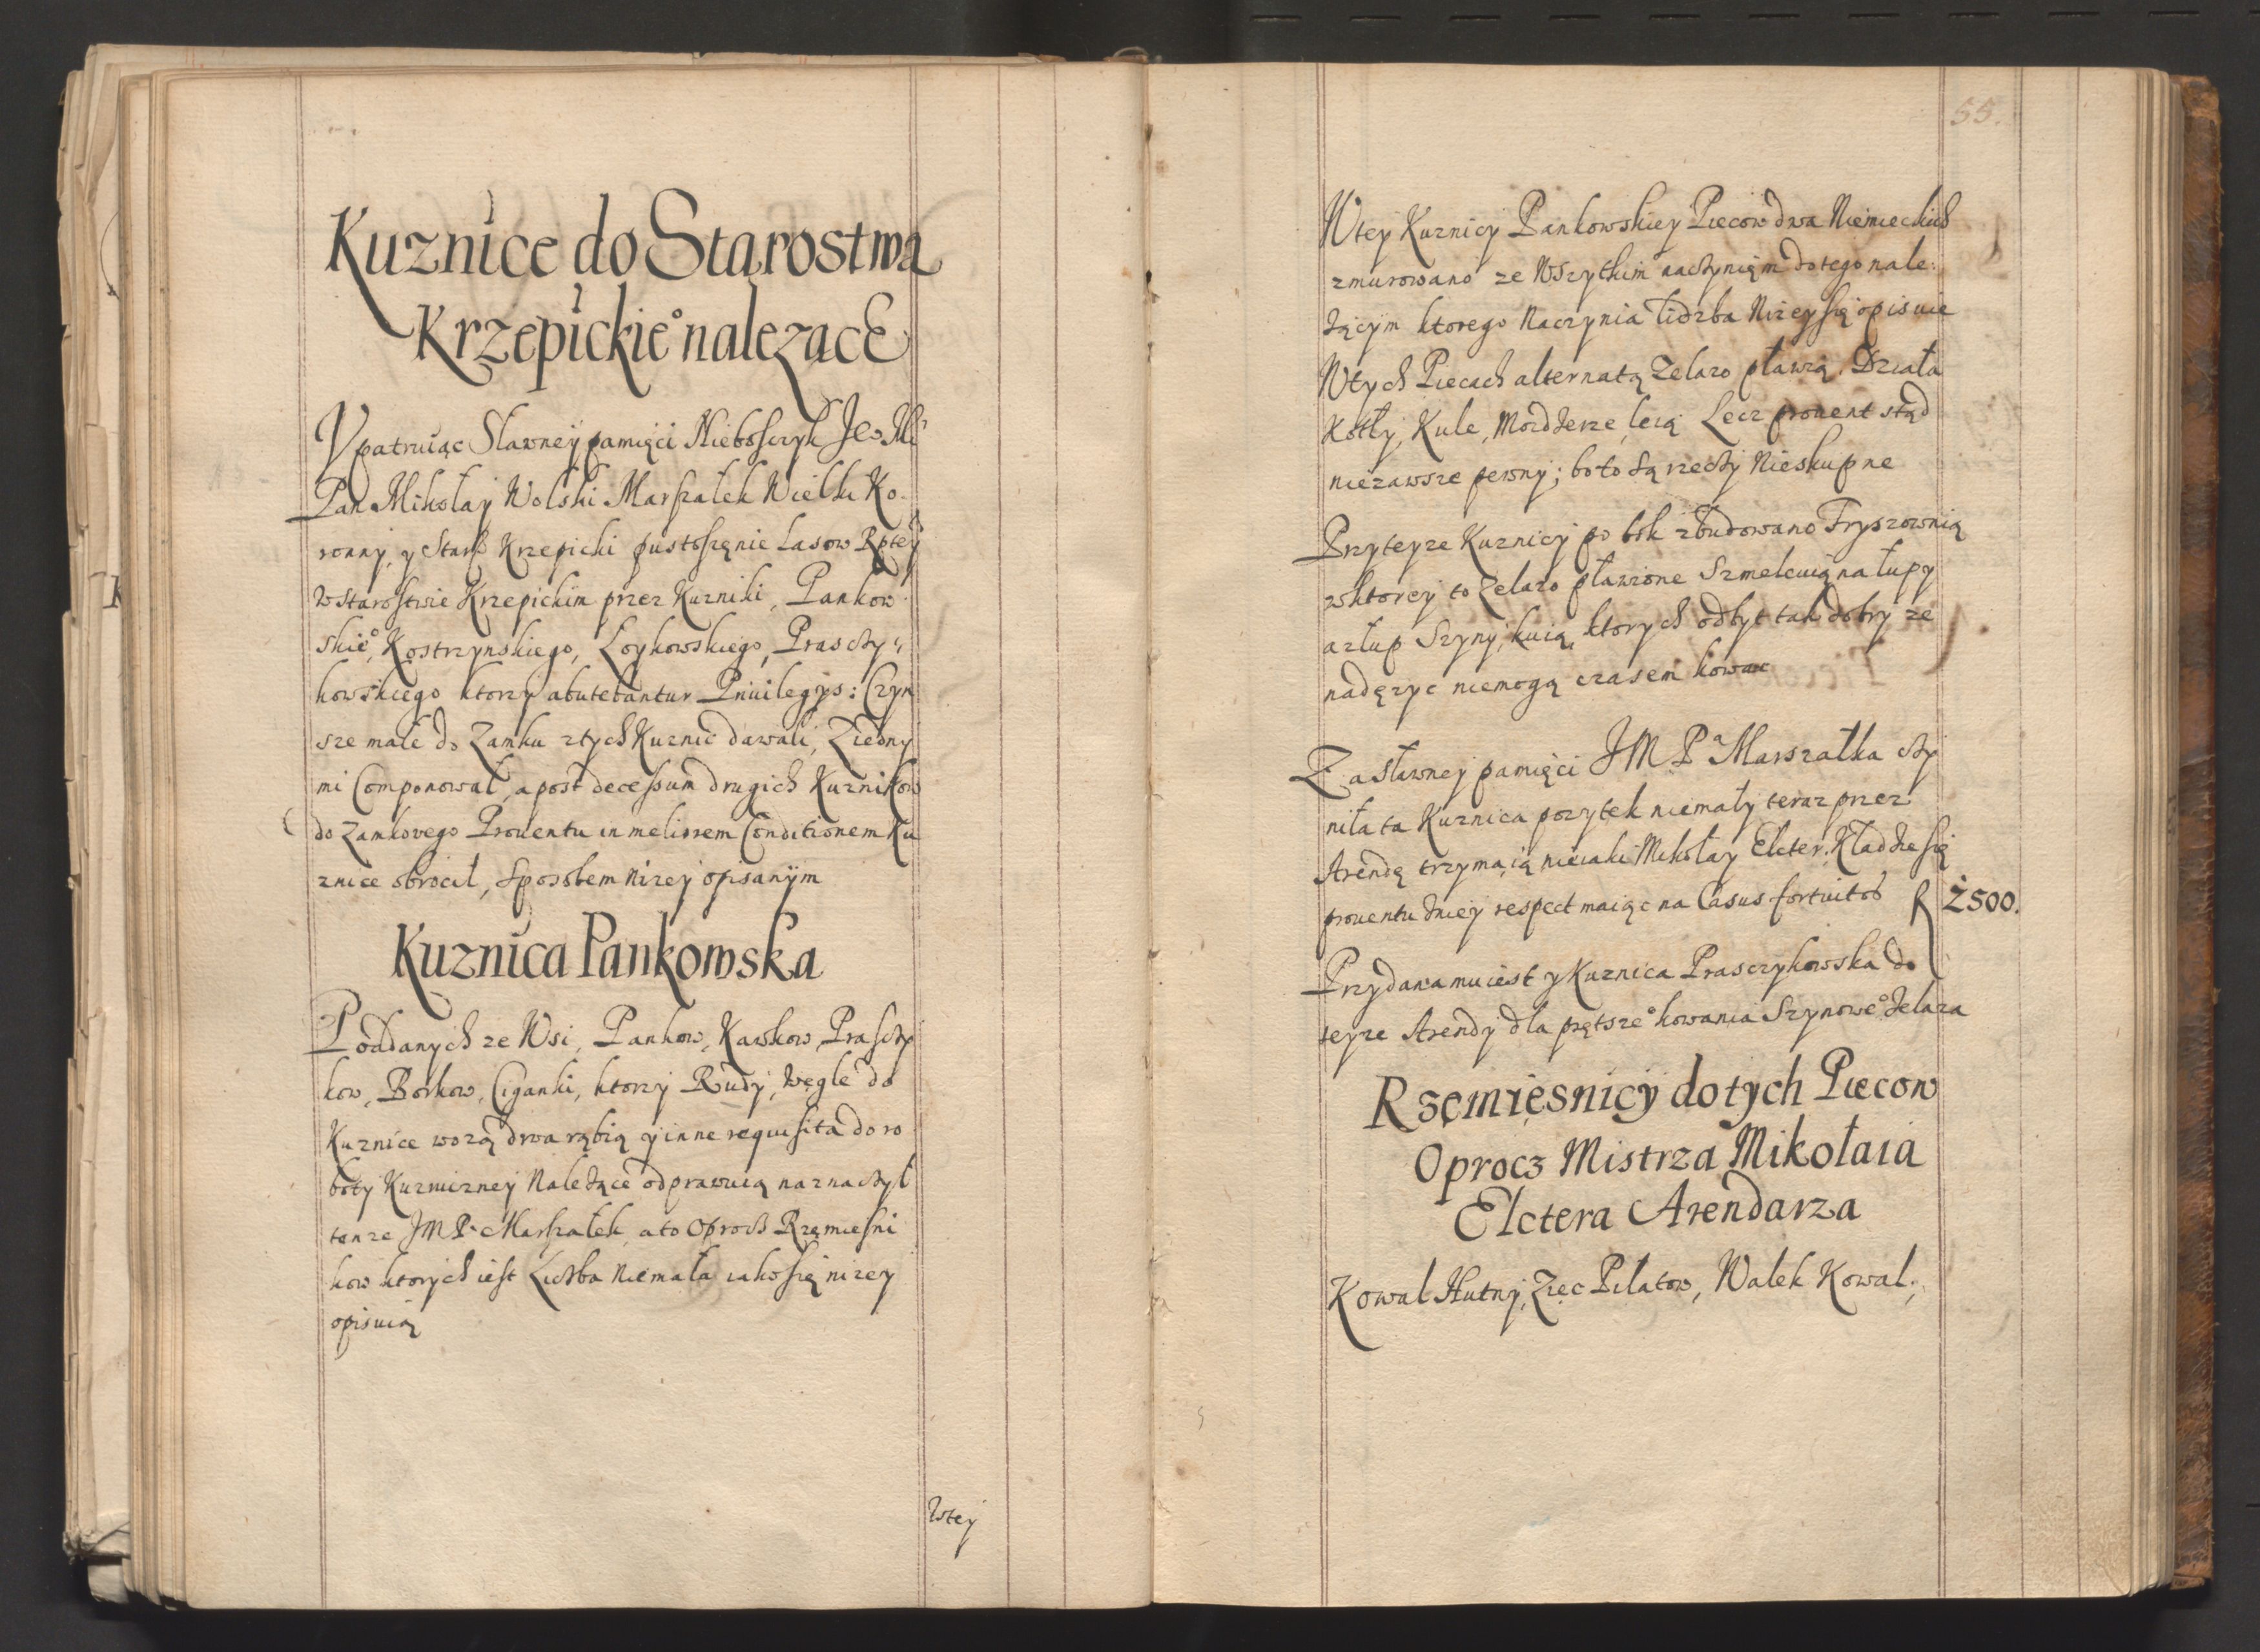 Kuznice do Starostwa
Krzepickie° nalezące
Vpatruiąc Slawney pamięci Nieboszczyk Je° Mć
Pan Mikołay Wolski Marszałek Wielki Ko
ronny, y Starß Krzepicki pustoszęnie Lasow Rptey
w Starostwie Krzepickim przez Kuzniki, Pankow
skie°, Kostrzynskiego, Łoykowskiego, Prasczy
kowskiego ktorzy abutebantur Priuilegijs: Czyn
sze małe do Zamku z tych Kuznic dawali, Z iedny
mi Componował, a post decessum drugich Kuznikow
do Zamkovego Prouentu in meliorem Conditionem Ku
znice obrocił, sposobem nizey opisanym
Kuznica Pankowska
Poddanych ze Wsi, Pankow, Kawkow, Prasczy
kow, Borkow, Ciganki, ktorzy Rudy, węgle do
Kuznice wozą drwa rąbią y inne requisita do ro
boty Kuzniczney Nalezące odprawuią naznaczył
tenze JM P. Marszałek, a to oprocz Rzęmieśni
kow ktorych iest Liczba Niemała iako się nizey
opisuią
W tey
55.
W tey Kuznicy Pankowskiey Piecow dwa Niemieckich
zmurowano ze Wszytkim naczynięm do tego nale:
żącym ktorego Naczynia liczba Nizey się opisuie
W tych Piecach alternatą Zelazo pławią. Działa
Kotły, Kule, Mozdzerze leią Lecz prouent stąd
niezawsze pewny; bo to są rzeczy Nieskupne
Przy teyze Kuznicy po bok zbudowano Fryszownią
w ktorey to Zelazo pławione Szmelcuią na łupy
a z łup Szyny kuią, ktorych odbyt tak dobry ze
nadęzyc niemogą czasem kowac
Za sławney pamięci JM Pa Marszałka czy
niła ta Kuznica pozytek niemały teraz przez
Arendę trzyma ią nieiaki Mikołay Elcter. Kładzie się
prouentu zniey respect maiąc na Casus fortuitos f 2500.
Przydana mu iest y Kuznica Prasczykowska do
teyze Arendy dla prętsze° kowania Szynowe° żelaza
Rzęmiesnicy do tych Piecow
Oprocz Mistrza Mikołaia
Elctera Arendarza
Kowal Hutny, Zięc Piłatow, Walek Kowal,